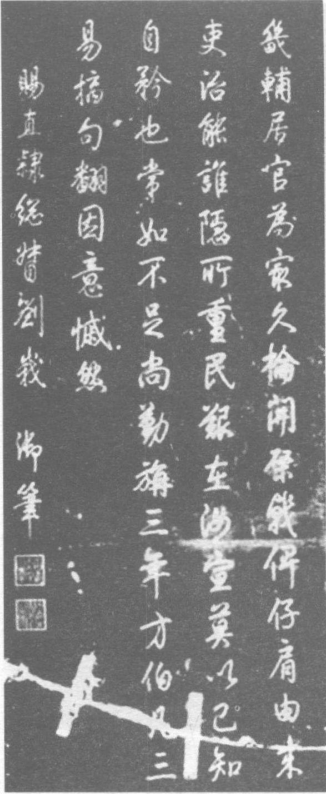 畿輔居官為㝡久掄開棨戟俾仔肩由来
吏治能誰隱所重民艱在宣莫以已知
自矜也常如不足尚勤旃三年方伯凡三
易摛句翻因意然
賜直隸總督劉峩 御筆